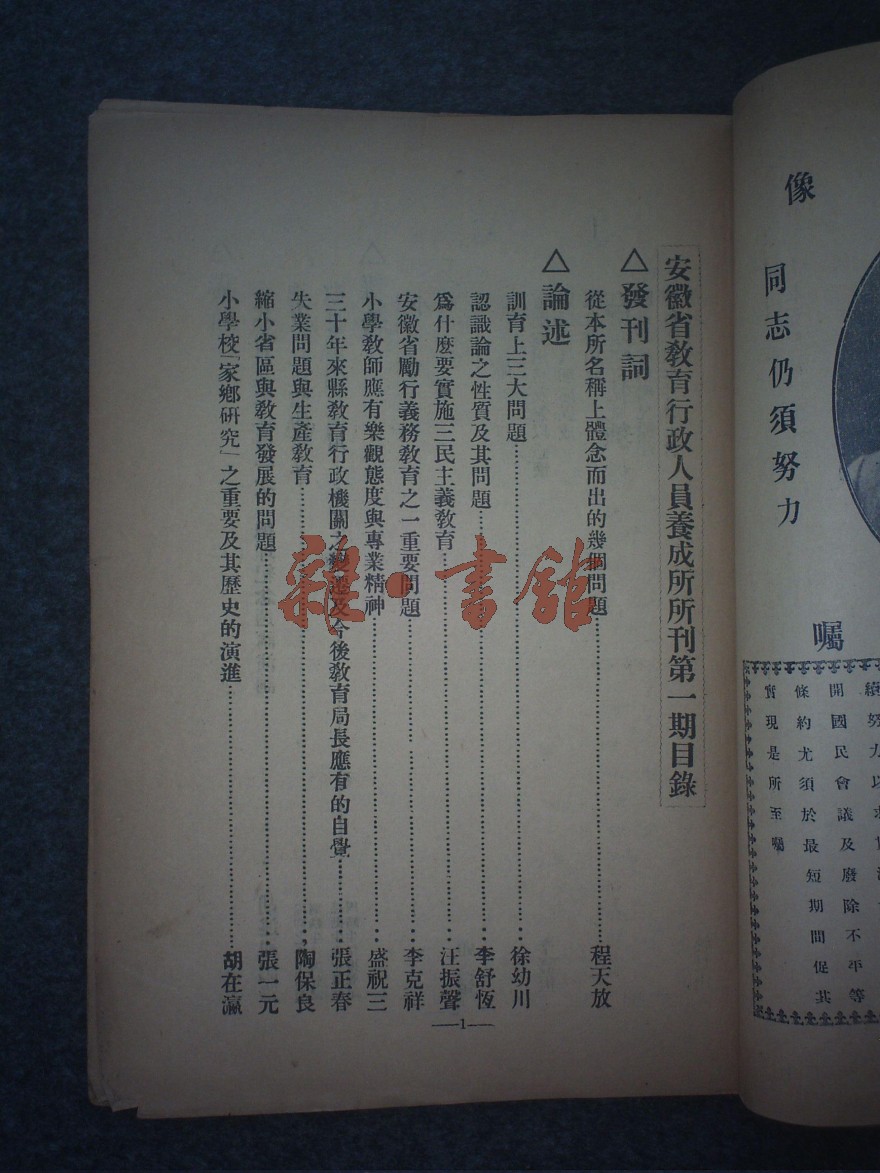 像
同志仍須努力
囑
開國民會議及廢除不平等
條約尤須於最短期間促其
實現是所至囑
安徽省教育行政人員養成所所刊第一期目錄
△發刊詞
從本所名稱上體念而出的幾個問題……程天放
△論述
訓育上三大問題……徐幼川
認識論之性質及其問題……李舒恆
爲什麽要實施三民主義教育……汪振聲
安徽省勵行義務教育之一重要問題……李克祥
小學教師應有樂觀態度與專業精神……盛祝三
三十年來縣教育行政機關之變遷及今後教育局長應有的自覺……張正春
失業問題與生產教育……陶保良
縮小省區與教育發展的問題……張一元
小學校「家鄉研究」之重要及其歷史的演進……胡在瀛
—1—
雜·書館